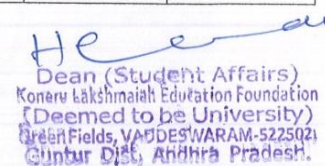 Dean (Student Affairs)
Koneru Lakshmaiah Education Foundation
(Deemed to be University)
Green Fields, VADDESWARAM-522502
Guntur Dist, Andhra Pradesh.